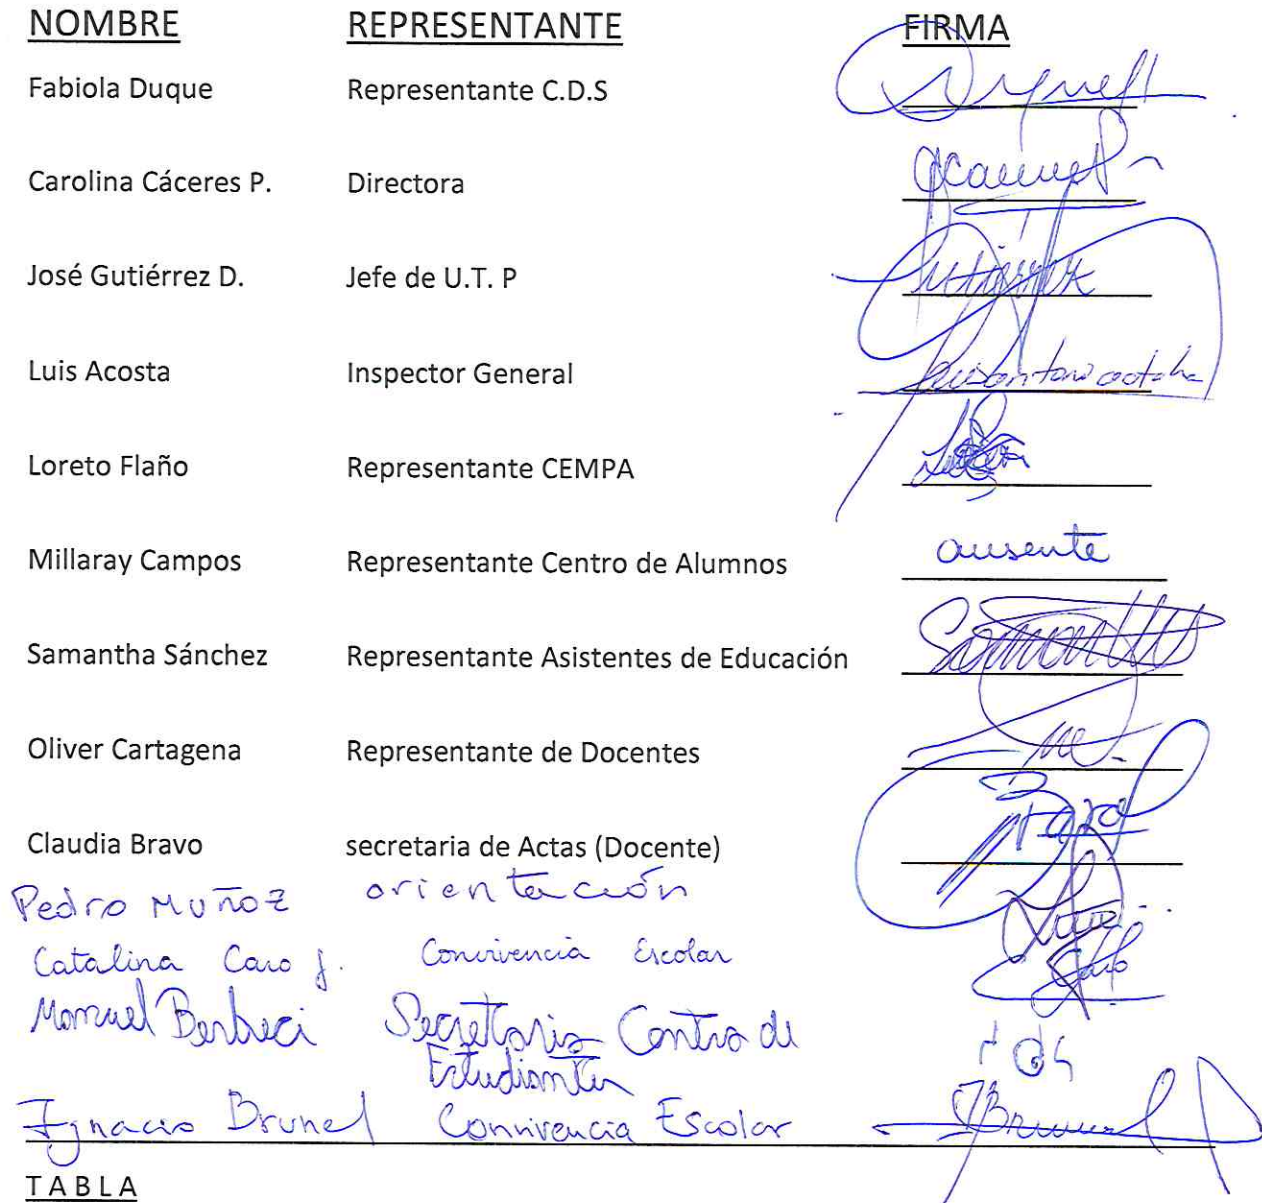 NOMBRE REPRESENTANTE FIRMA
Fabiola Duque Representante C.D.S
Carolina Cáceres P. Directora
José Gutiérrez D. Jefe de U.T. P Gutiérrez
Luis Acosta Inspector General
Loreto Flaño Representante CEMPA
Millaray Campos Representante Centro de Alumnos ausente
Samantha Sánchez Representante Asistentes de Educación Samantha
Oliver Cartagena Representante de Docentes
Claudia Bravo secretaria de Actas (Docente)
Pedro Muñoz orientación
Catalina Caro J. Convivencia Escolar Caro
Manuel Secretario Centro de
Estudiantes
Ignacio Brunel Convivencia Escolar IBrunel
TABLA